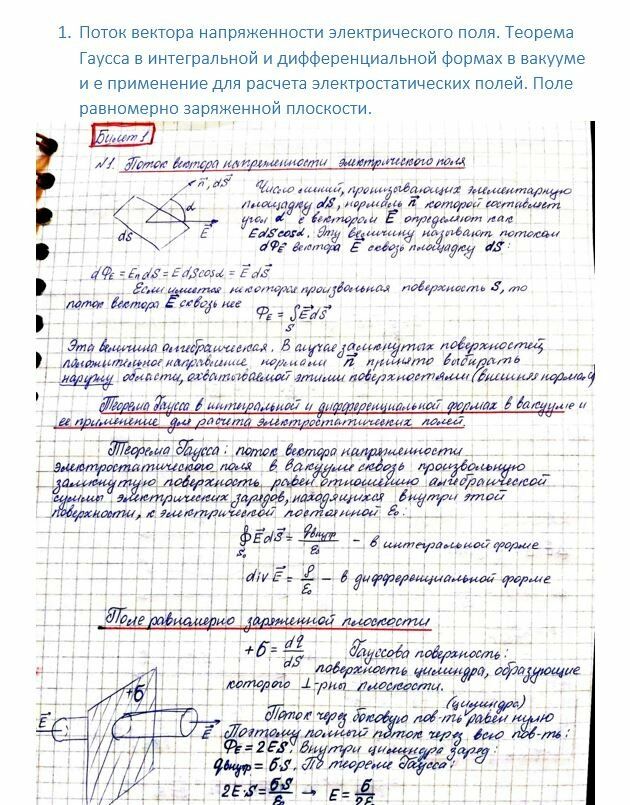 1. Поток вектора напряженности электрического поля. Теорема
Гаусса в интегральной и дифференциальной формах в вакууме
и е применение для расчета электростатических полей. Поле
равномерно заряженной плоскости.
Билет 1
№1. Поток вектора напряженности электрического поля
n⃗, dS⃗
α
E⃗
dS
Число линий, пронизывающих элементарную
площадку dS, нормаль n⃗ которой составляет
угол α с вектором E⃗ определяют как
EdScosα. Эту величину называют потоком
dΦE вектора E⃗ сквозь площадку dS:
dΦE = EndS = EdScosα = E⃗dS⃗
Если имеется некоторая произвольная поверхность S, то
поток вектора E⃗ сквозь нее
ΦE = ∫S E⃗dS⃗
Эта величина алгебраическая. В случае замкнутых поверхностей
положительное направление нормали n⃗ принято выбирать
наружу области, охватываемой этими поверхностями (внешняя нормаль)
Теорема Гаусса в интегральной и дифференциальной формах в вакууме и
ее применение для расчета электростатических полей.
Теорема Гаусса: поток вектора напряженности
электростатического поля в вакууме сквозь произвольную
замкнутую поверхность равен отношению алгебраической
суммы электрических зарядов, находящихся внутри этой
поверхности, к электрической постоянной ε₀:
∮ E⃗dS⃗ = qвнутр/ε₀ – в интегральной форме
div E⃗ = ρ/ε₀ – в дифференциальной форме
Поле равномерно заряженной плоскости
+σ = dq/dS Гауссова поверхность:
поверхность цилиндра, образующие
которого ⊥-рны плоскости.
+σ
E⃗
E⃗
(цилиндра)
Поток через боковую пов-ть равен нулю
Поэтому полный поток через всю пов-ть:
ΦE = 2ES. Внутри цилиндра заряд:
qвнутр = σS. По теореме Гаусса:
2E·S = σ·S/ε₀ → E = σ/2ε₀